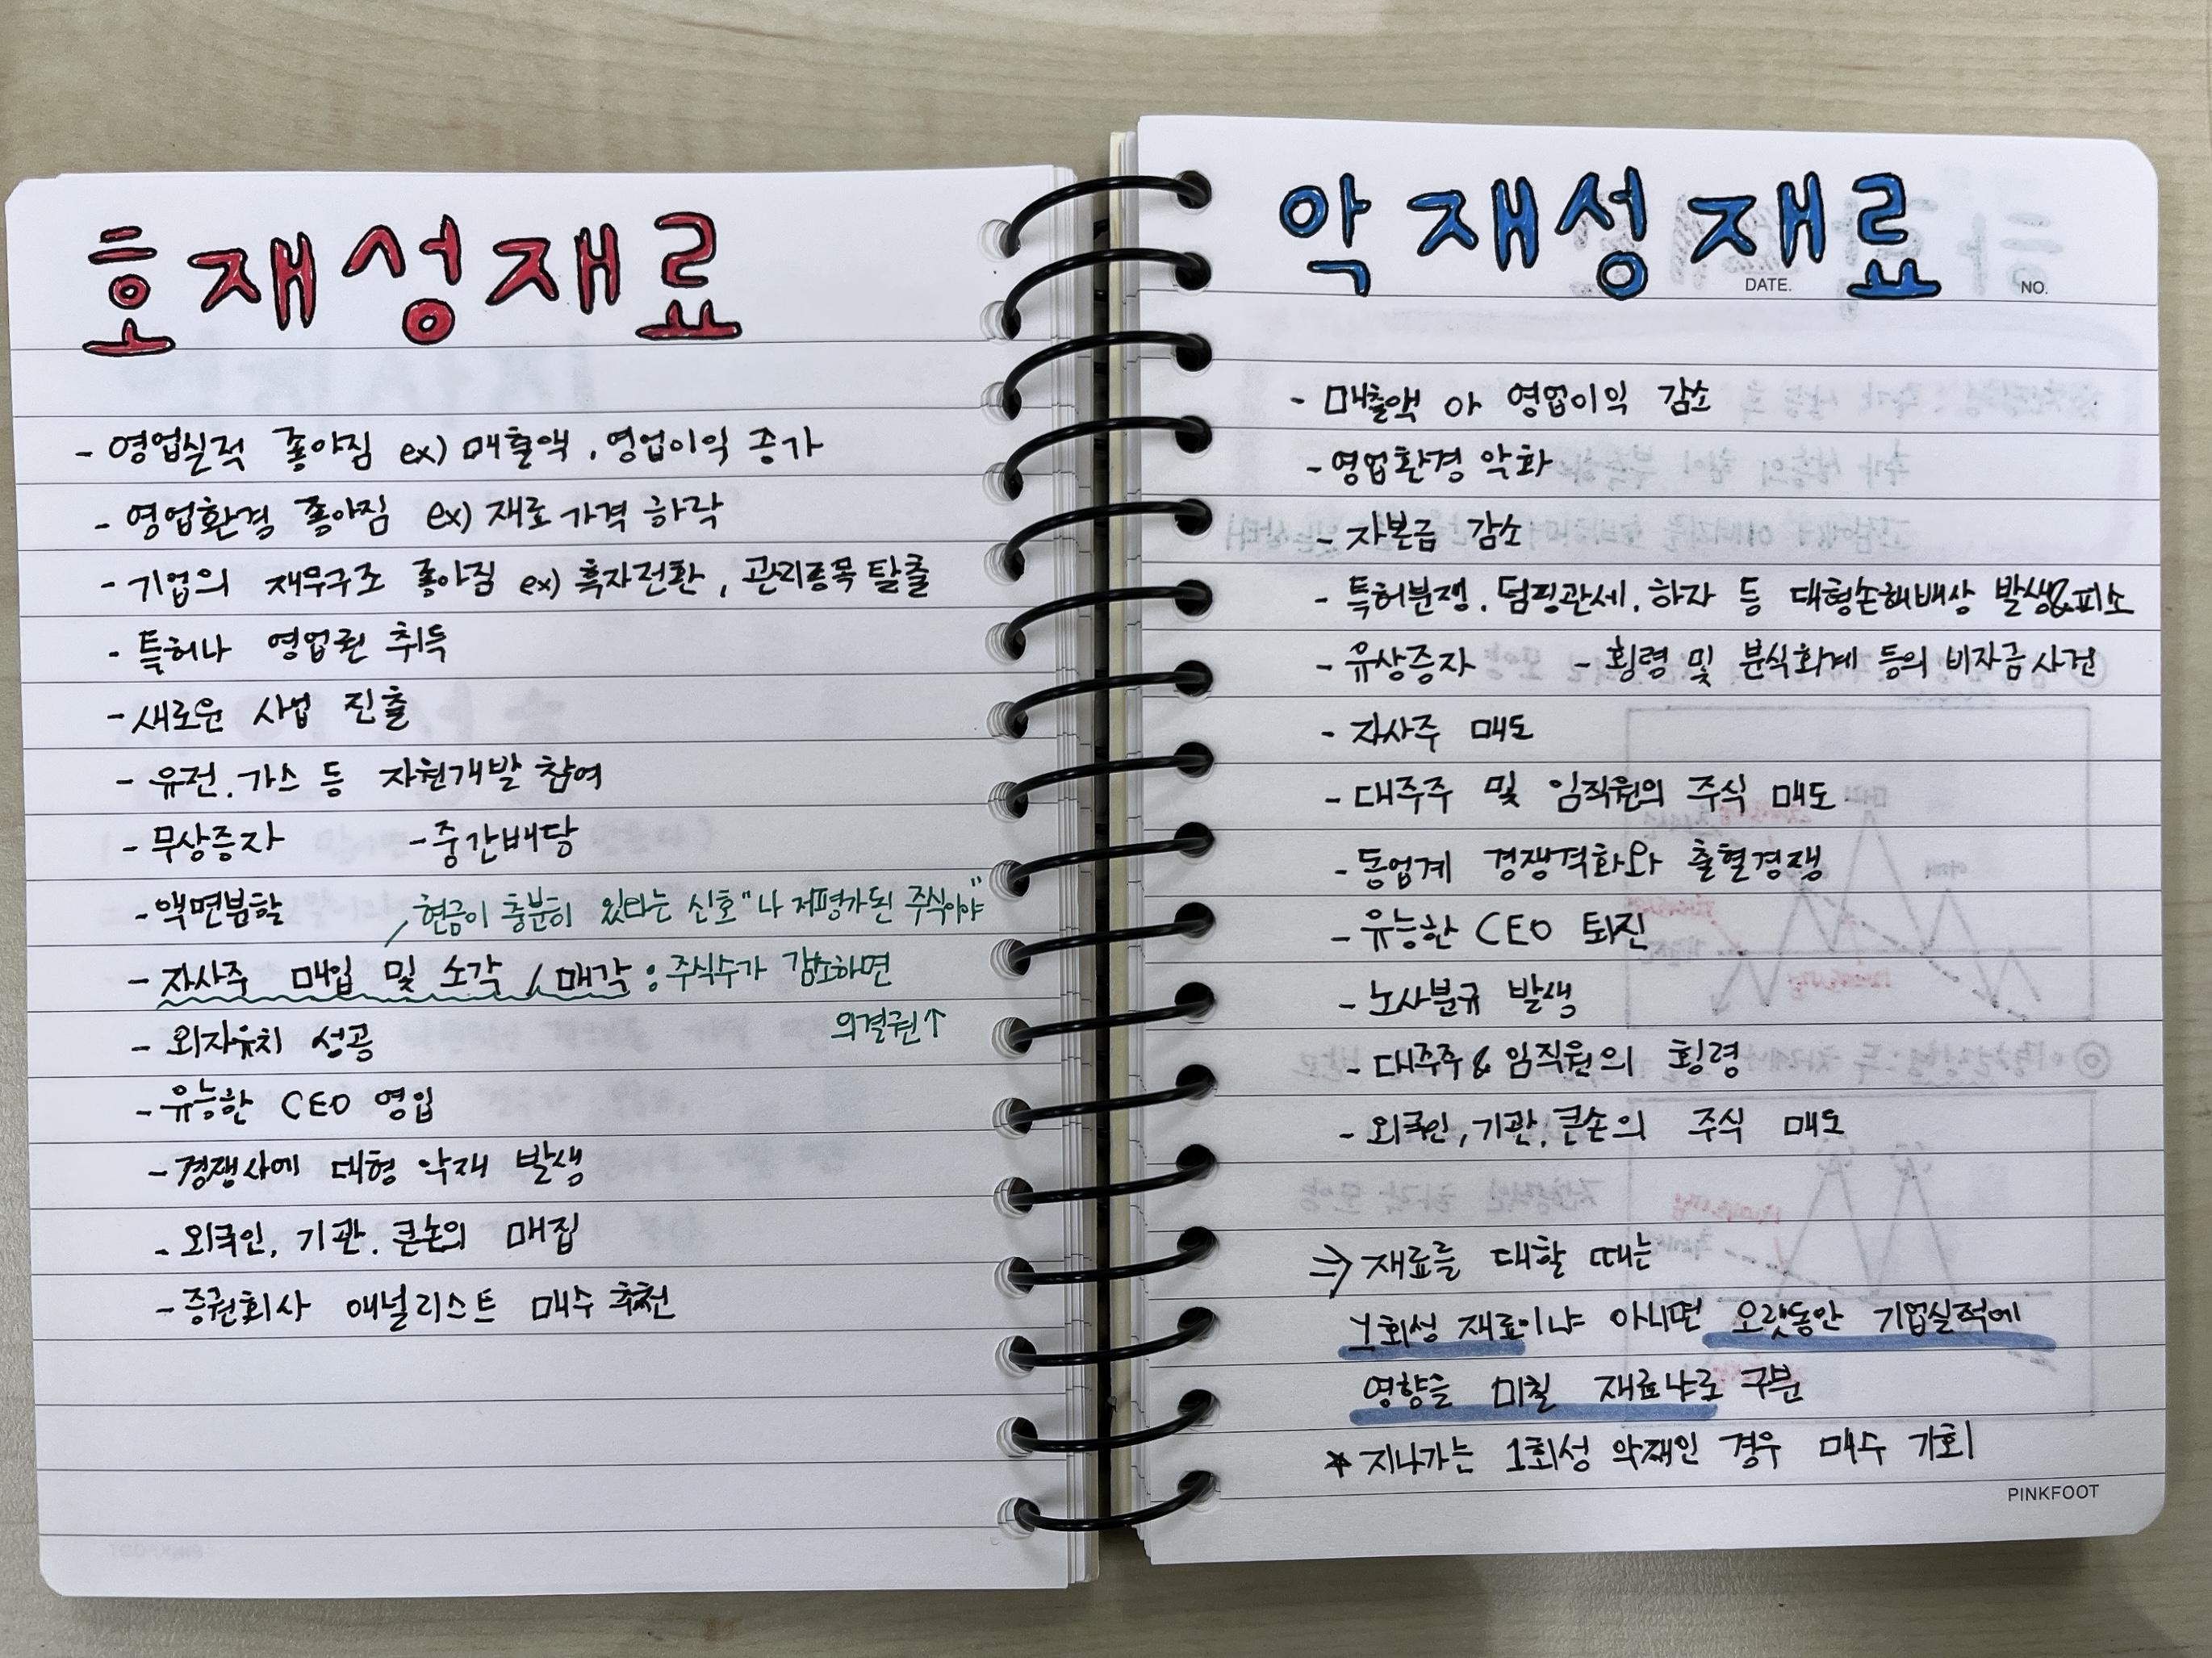 호재성재료
- 영업실적 좋아짐 ex) 매출액, 영업이익 증가
- 영업환경 좋아짐 ex) 재료 가격 하락
- 기업의 재무구조 좋아짐 ex) 흑자전환, 관리종목 탈출
- 특허나 영업권 취득
- 새로운 사업 진출
- 유전, 가스 등 자원개발 참여
- 무상증자 - 중간배당
- 액면분할
현금이 충분히 있다는 신호 "나 저평가된 주식이야"
- 자사주 매입 및 소각 / 매각 : 주식수가 감소하면
의결권↑
- 외자유치 성공
- 유능한 CEO 영입
- 경쟁사에 대형 악재 발생
- 외국인, 기관, 큰손의 매집
- 증권회사 애널리스트 매수 추천
악재성재료
DATE. NO.
- 매출액 아 영업이익 감소
- 영업환경 악화
- 자본금 감소
- 특허분쟁, 덤핑관세, 하자 등 대형손해배상 발생&피소
- 유상증자 - 횡령 및 분식회계 등의 비자금사건
- 자사주 매도
- 대주주 및 임직원의 주식 매도
- 동업계 경쟁격화와 출혈경쟁
- 유능한 CEO 퇴진
- 노사분규 발생
- 대주주 & 임직원의 횡령
- 외국인, 기관, 큰손의 주식 매도
⇒ 재료를 대할 때는
1회성 재료이냐 아니면 오랫동안 기업실적에
영향을 미칠 재료냐로 구분
* 지나가는 1회성 악재인 경우 매수 기회
PINKFOOT